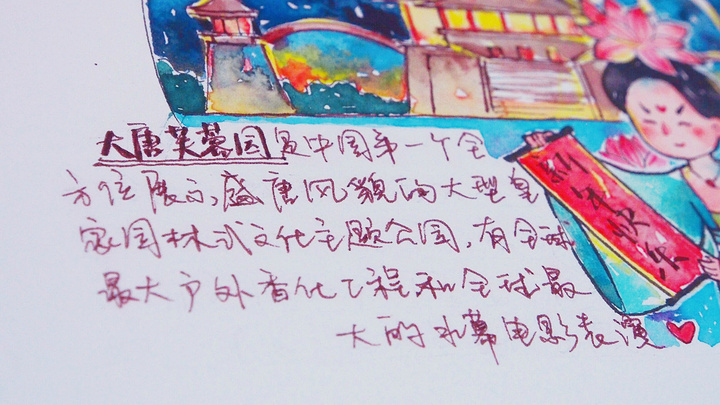 大唐芙蓉园是中国第一个全
方位展示,盛唐风貌的大型皇
家园林式文化主题公园,有全球
最大户外香化工程和全球最
大的水幕电影表演
新年快乐